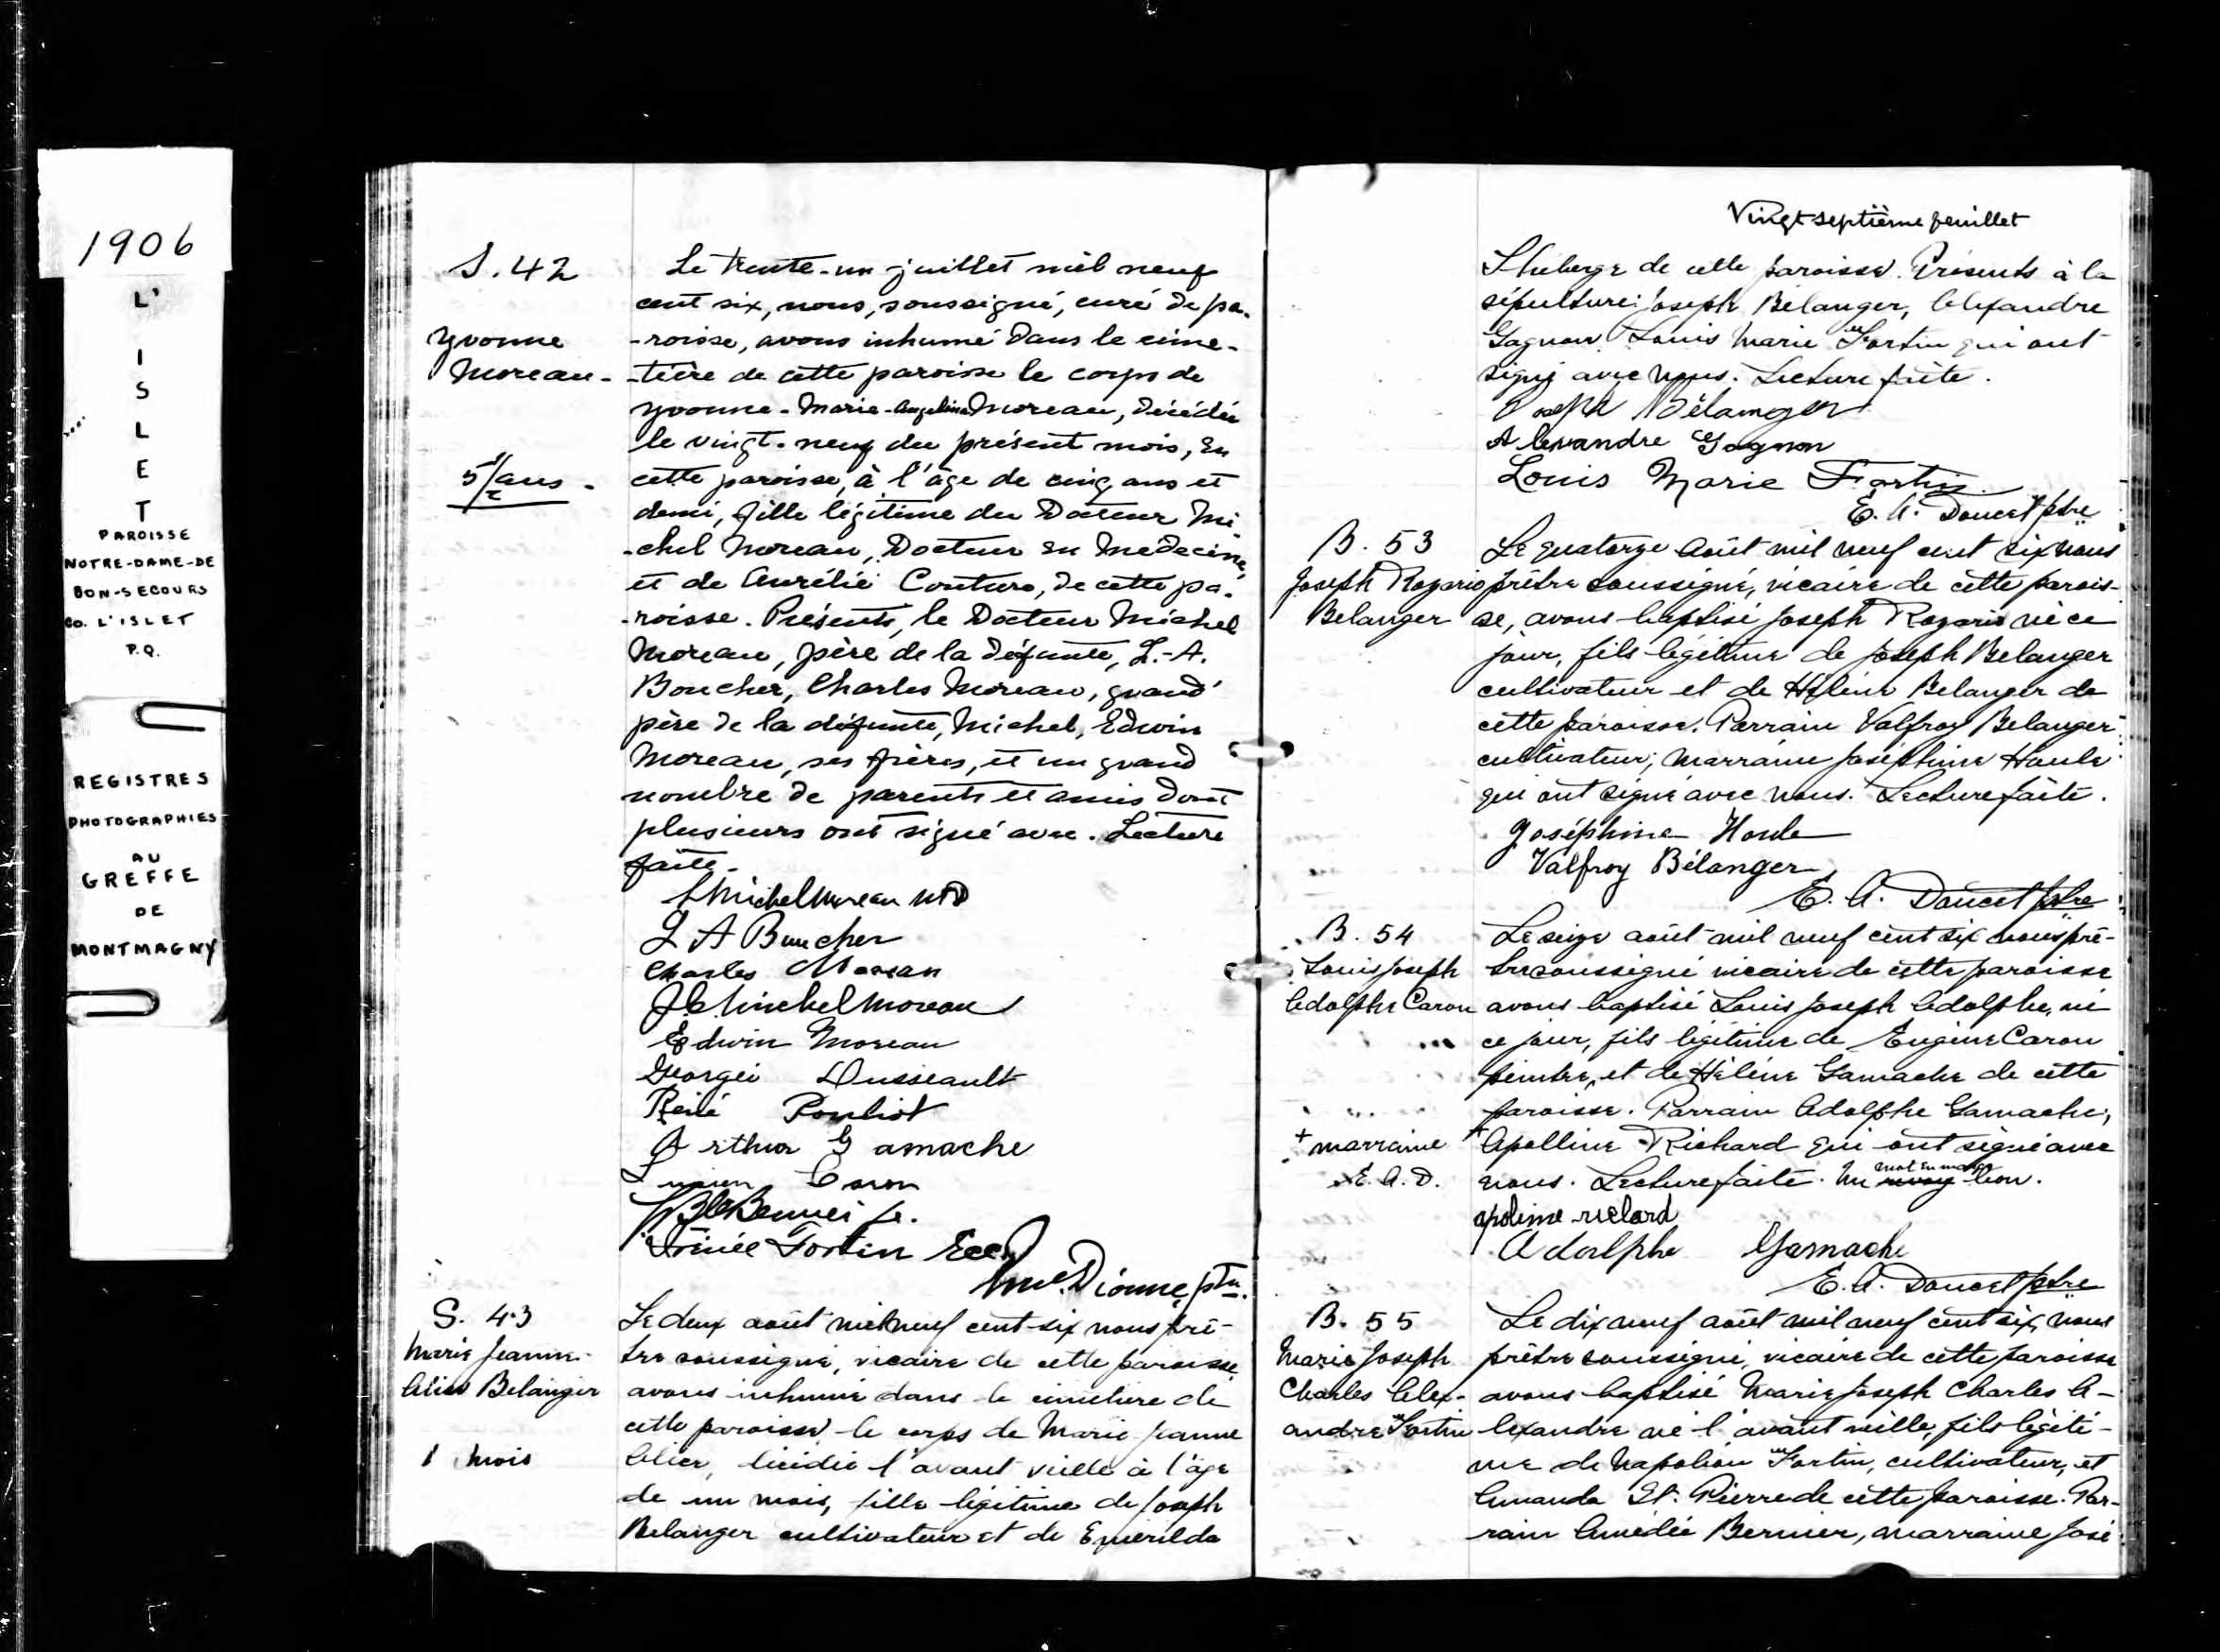 1906
L'
I
S
L
E
T
PAROISSE
NOTRE-DAME-DE
BON-SECOURS
CO. L'ISLET
P.Q.
REGISTRES
PHOTOGRAPHIES
AU
GREFFE
DE
MONTMAGNY
S. 42
Yvonne
Moreau -
5 1/2 ans -
Le trente-un juillet mil neuf
cent six, nous, soussigné, curé de pa-
-roisse, avons inhumé dans le cime-
-tière de cette paroisse le corps de
Yvonne-Marie-Angelina Moreau, décédée
le vingt-neuf du présent mois, en
cette paroisse, à l'âge de cinq ans et
demi, fille légitime du Docteur Mi
-chel Moreau, Docteur en Médecine,
et de Aurélie Couture, de cette pa-
-roisse. Présents, le Docteur Michel
Moreau, père de la défunte, L.-A.
Boucher, Charles Moreau, grand'
père de la défunte, Michel, Edwin
Moreau, ses frères, et un grand
nombre de parents et amis dont
plusieurs ont signé avec. Lecture
faite.
Michel Moreau MD
L A Boucher
Charles Moreau
Michel Moreau
Edwin Moreau
Georges Dusseault
René Pouliot
Arthur Gamache
Caron
Fortin Ecc
Dionne, ptre.
S. 43
Marie Jeanne
Alice Belanger
1 mois
Le deux août mil neuf cent six nous prê-
tre soussigné, vicaire de cette paroisse,
avons inhumé dans le cimetière de
cette paroisse le corps de Marie Jeanne
Alice, décédée l'avant veille à l'âge
de un mois, fille légitime de Joseph
Belanger cultivateur et de Emerilda
Vingt septième feuillet
Theberge de cette paroisse. Présents à la
sépulture: Joseph Belanger, Alexandre
Gagnon Louis Marie Fortin qui ont
signé avec nous. Lecture faite.
Joseph Bélanger
Alexandre Gagnon
Louis Marie Fortin
E. A. Doucet ptre
B. 53
Joseph Rozario
Belanger
Le quatorze août mil neuf cent six nous
prêtre soussigné, vicaire de cette parois-
se, avons baptisé Joseph Rozario né ce
jour, fils légitime de Joseph Belanger
cultivateur et de Hélène Belanger de
cette paroisse. Parrain Valfroy Belanger
cultivateur, marraine Joséphine Houle
qui ont signé avec nous. Lecture faite.
Joséphine Houle
Valfroy Bélanger
E. A. Doucet ptre
B. 54
Louis Joseph
Adolphe Caron
+ marraine
E. A. D.
Le seize août mil neuf cent six nous prê-
tre soussigné vicaire de cette paroisse
avons baptisé Louis Joseph Adolphe, né
ce jour, fils légitime de Eugène Caron
peintre, et de Hélène Gamache de cette
paroisse. Parrain Adolphe Gamache,
+ Apolline Richard qui ont signé avec
nous. Lecture faite. Un mot en marge bon.
Apoline richard
Adolphe Gamache
E. A. Doucet ptre
B. 55
Marie Joseph
Charles Alex-
andre Fortin
Le dix neuf août mil neuf cent six, nous
prêtre soussigné, vicaire de cette paroisse
avons baptisé Marie Joseph Charles A-
lexandre né l'avant veille, fils légiti-
me de Napoléon Fortin, cultivateur, et
Amanda St. Pierre de cette paroisse. Par-
rain Amédée Bernier, marraine José